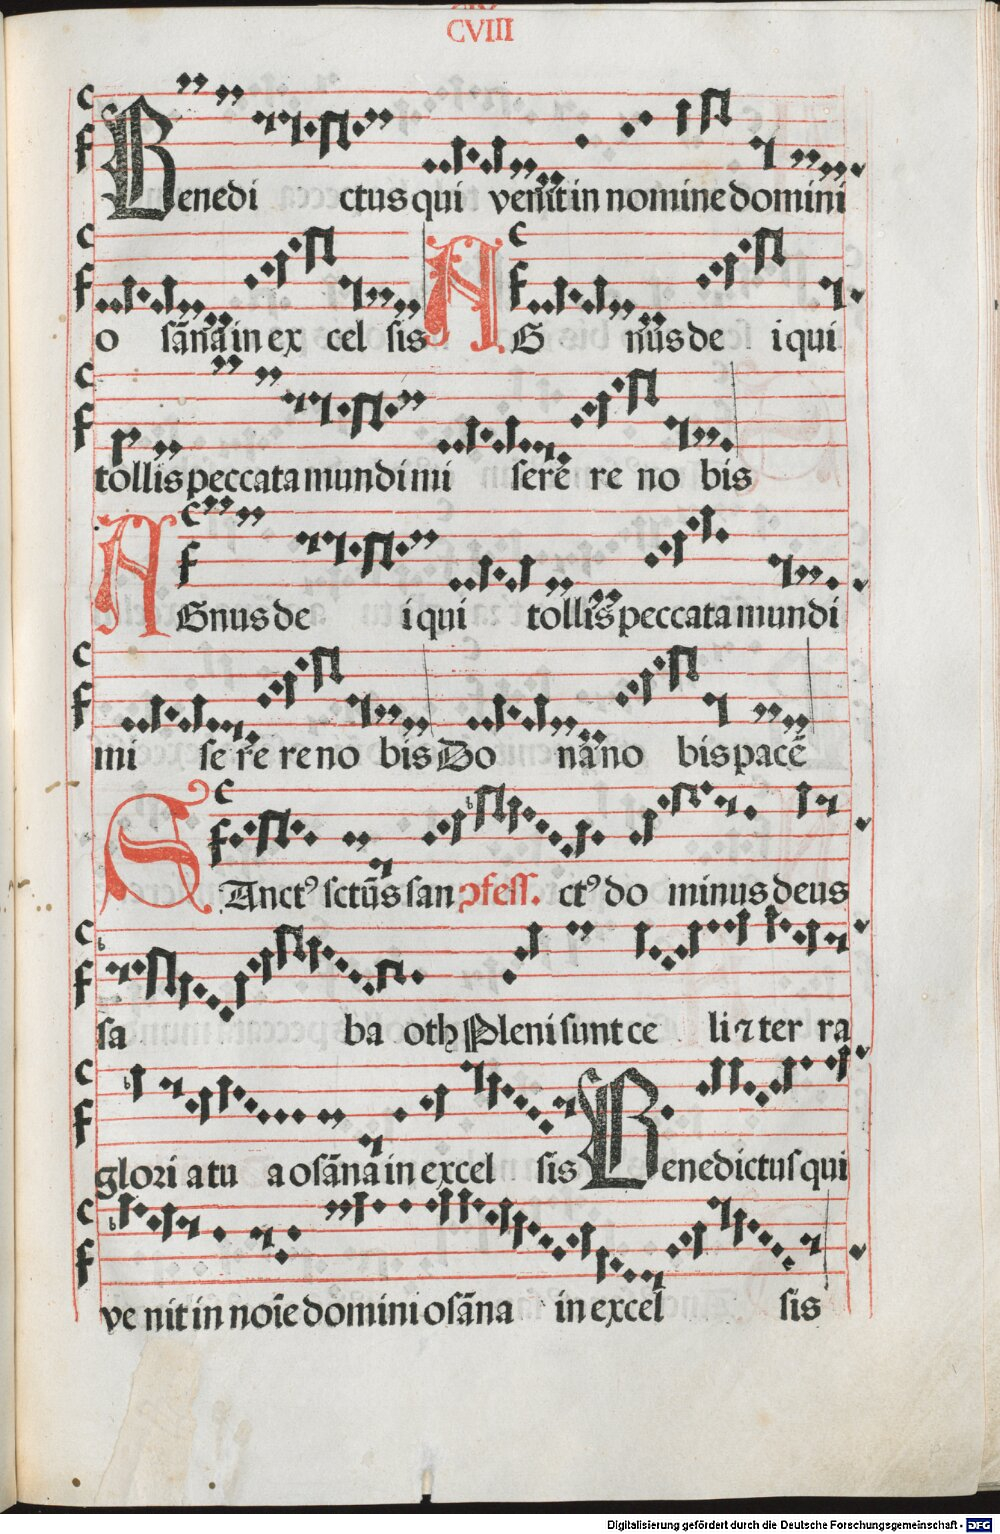 CVIII
Benedi ctus qui venit in nomine domini
o sāna in ex cel sis AG nus de i qui
tollis peccata mundi mi serē re no bis
AGnus de i qui tollis peccata mundi
mi se re re no bis Do na no bis pacē
SAnctꝰ sctūs san ꝯfess. ctꝰ do minus deus
sa ba oth Pleni sunt ce li ⁊ ter ra
glori a tu a osāna in excel sis Benedictus qui
ve nit in noīe domini osāna in excel sis
Digitalisierung gefördert durch die Deutsche Forschungsgemeinschaft - DFG